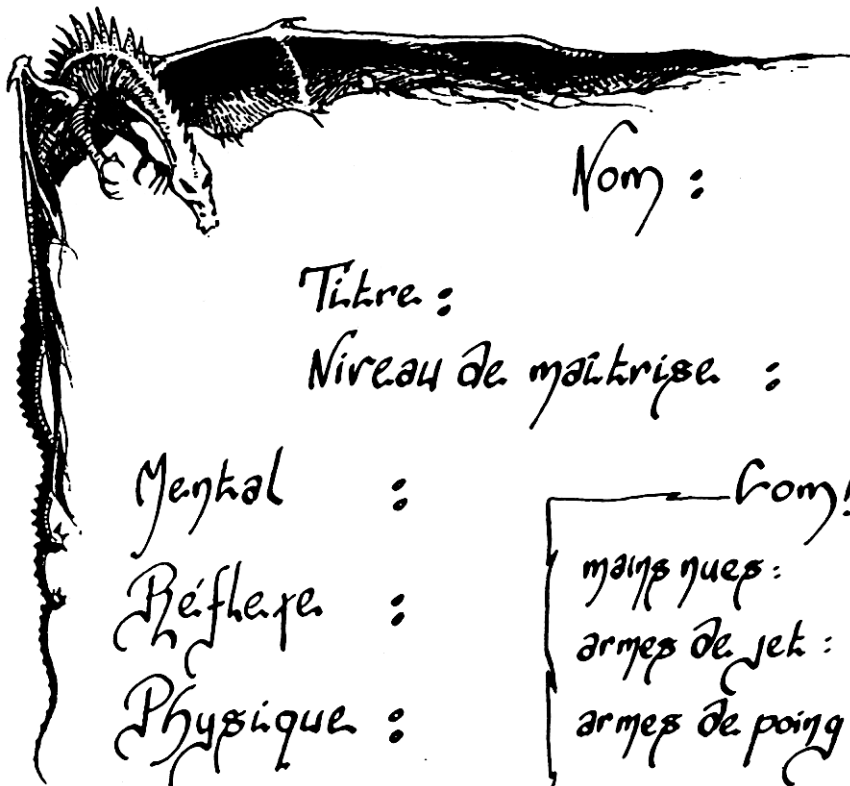 Nom :
Titre :
Niveau de maîtrise :
Mental :
Réflexe :
Physique :
mains nues :
armes de jet :
armes de poing